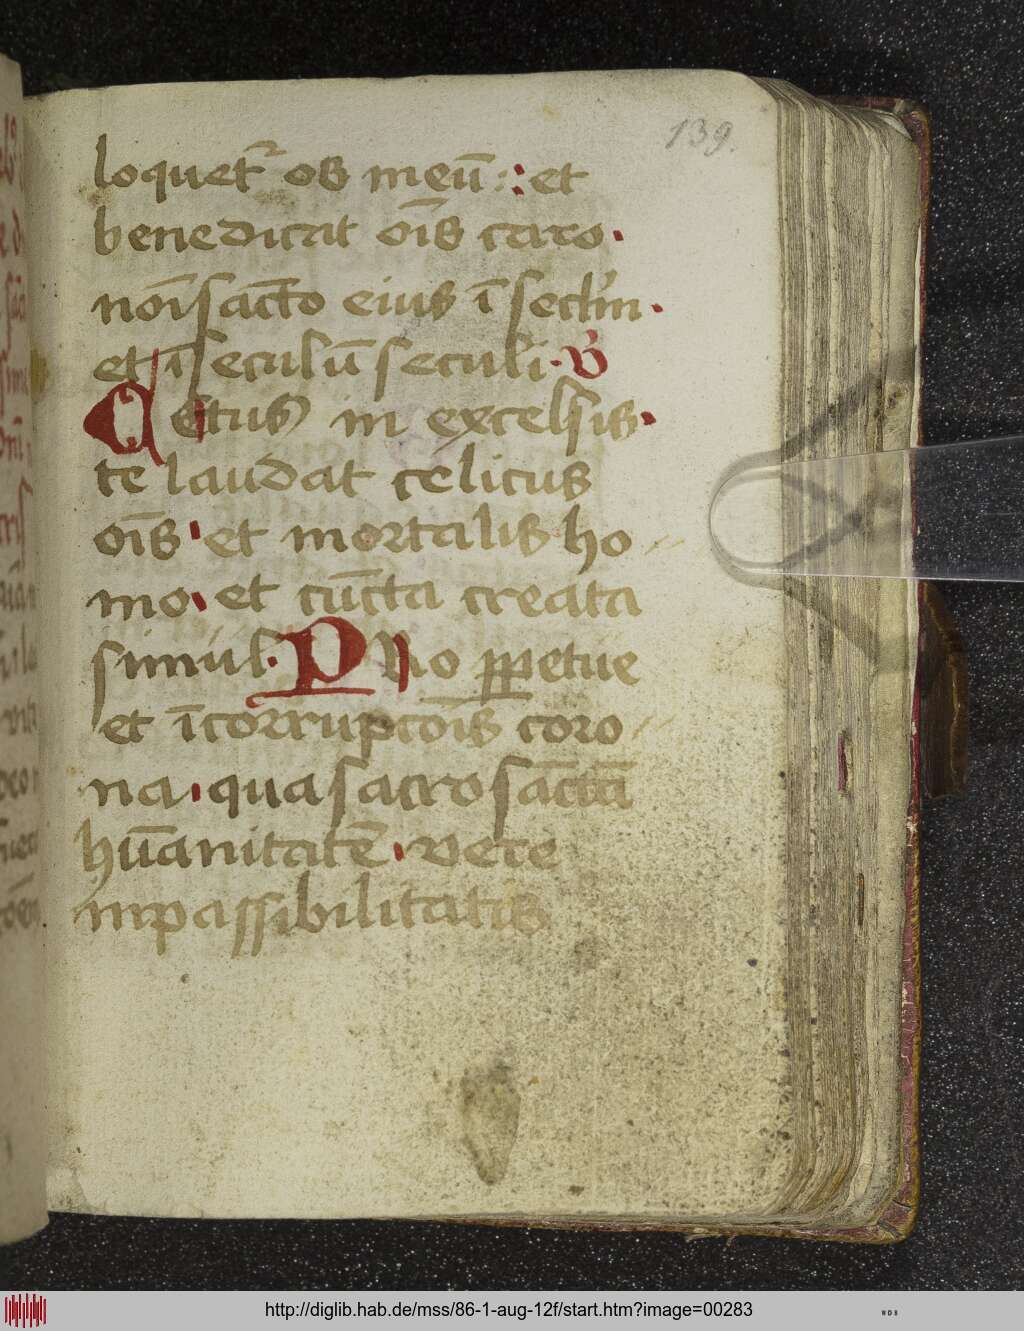 139.
loquet᷑ os meū : et
benedicat oīs caro.
noī sacto eius ī seclm̄.
et ī seculū seculi. V̄
Cetus in excelsis.
te laudat celicus
oīs et mortalis ho//
mo. et cūcta creata
simul. Pro ꝑpetue
et īcorrupcōis coro//
na. qua sacrosāctā
hūanitatē. vere
inpassibilitatis
http://diglib.hab.de/mss/86-1-aug-12f/start.htm?image=00283